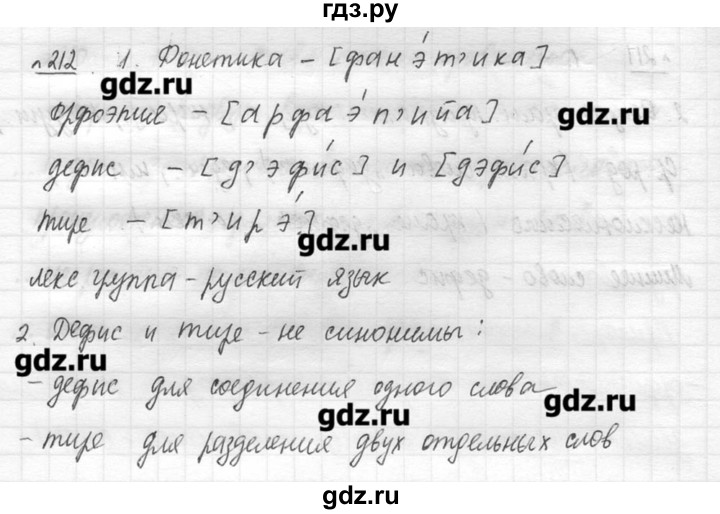 гдз.ру
№212 1. Фонетика – [фанэ́т'ика]
gdz.ru
орфоэпия – [арфаэ́п'ийа]
gdz.ru
дефис – [д'эфи́с] и [дэфи́с]
тире – [т'ирэ́]
gdz.ru
лекс группа – русский язык
2. Дефис и тире – не синонимы:
gdz.ru
– дефис для соединения одного слова
gdz.ru
gdz.ru
– тире для разделения двух отдельных слов
gdz.ru